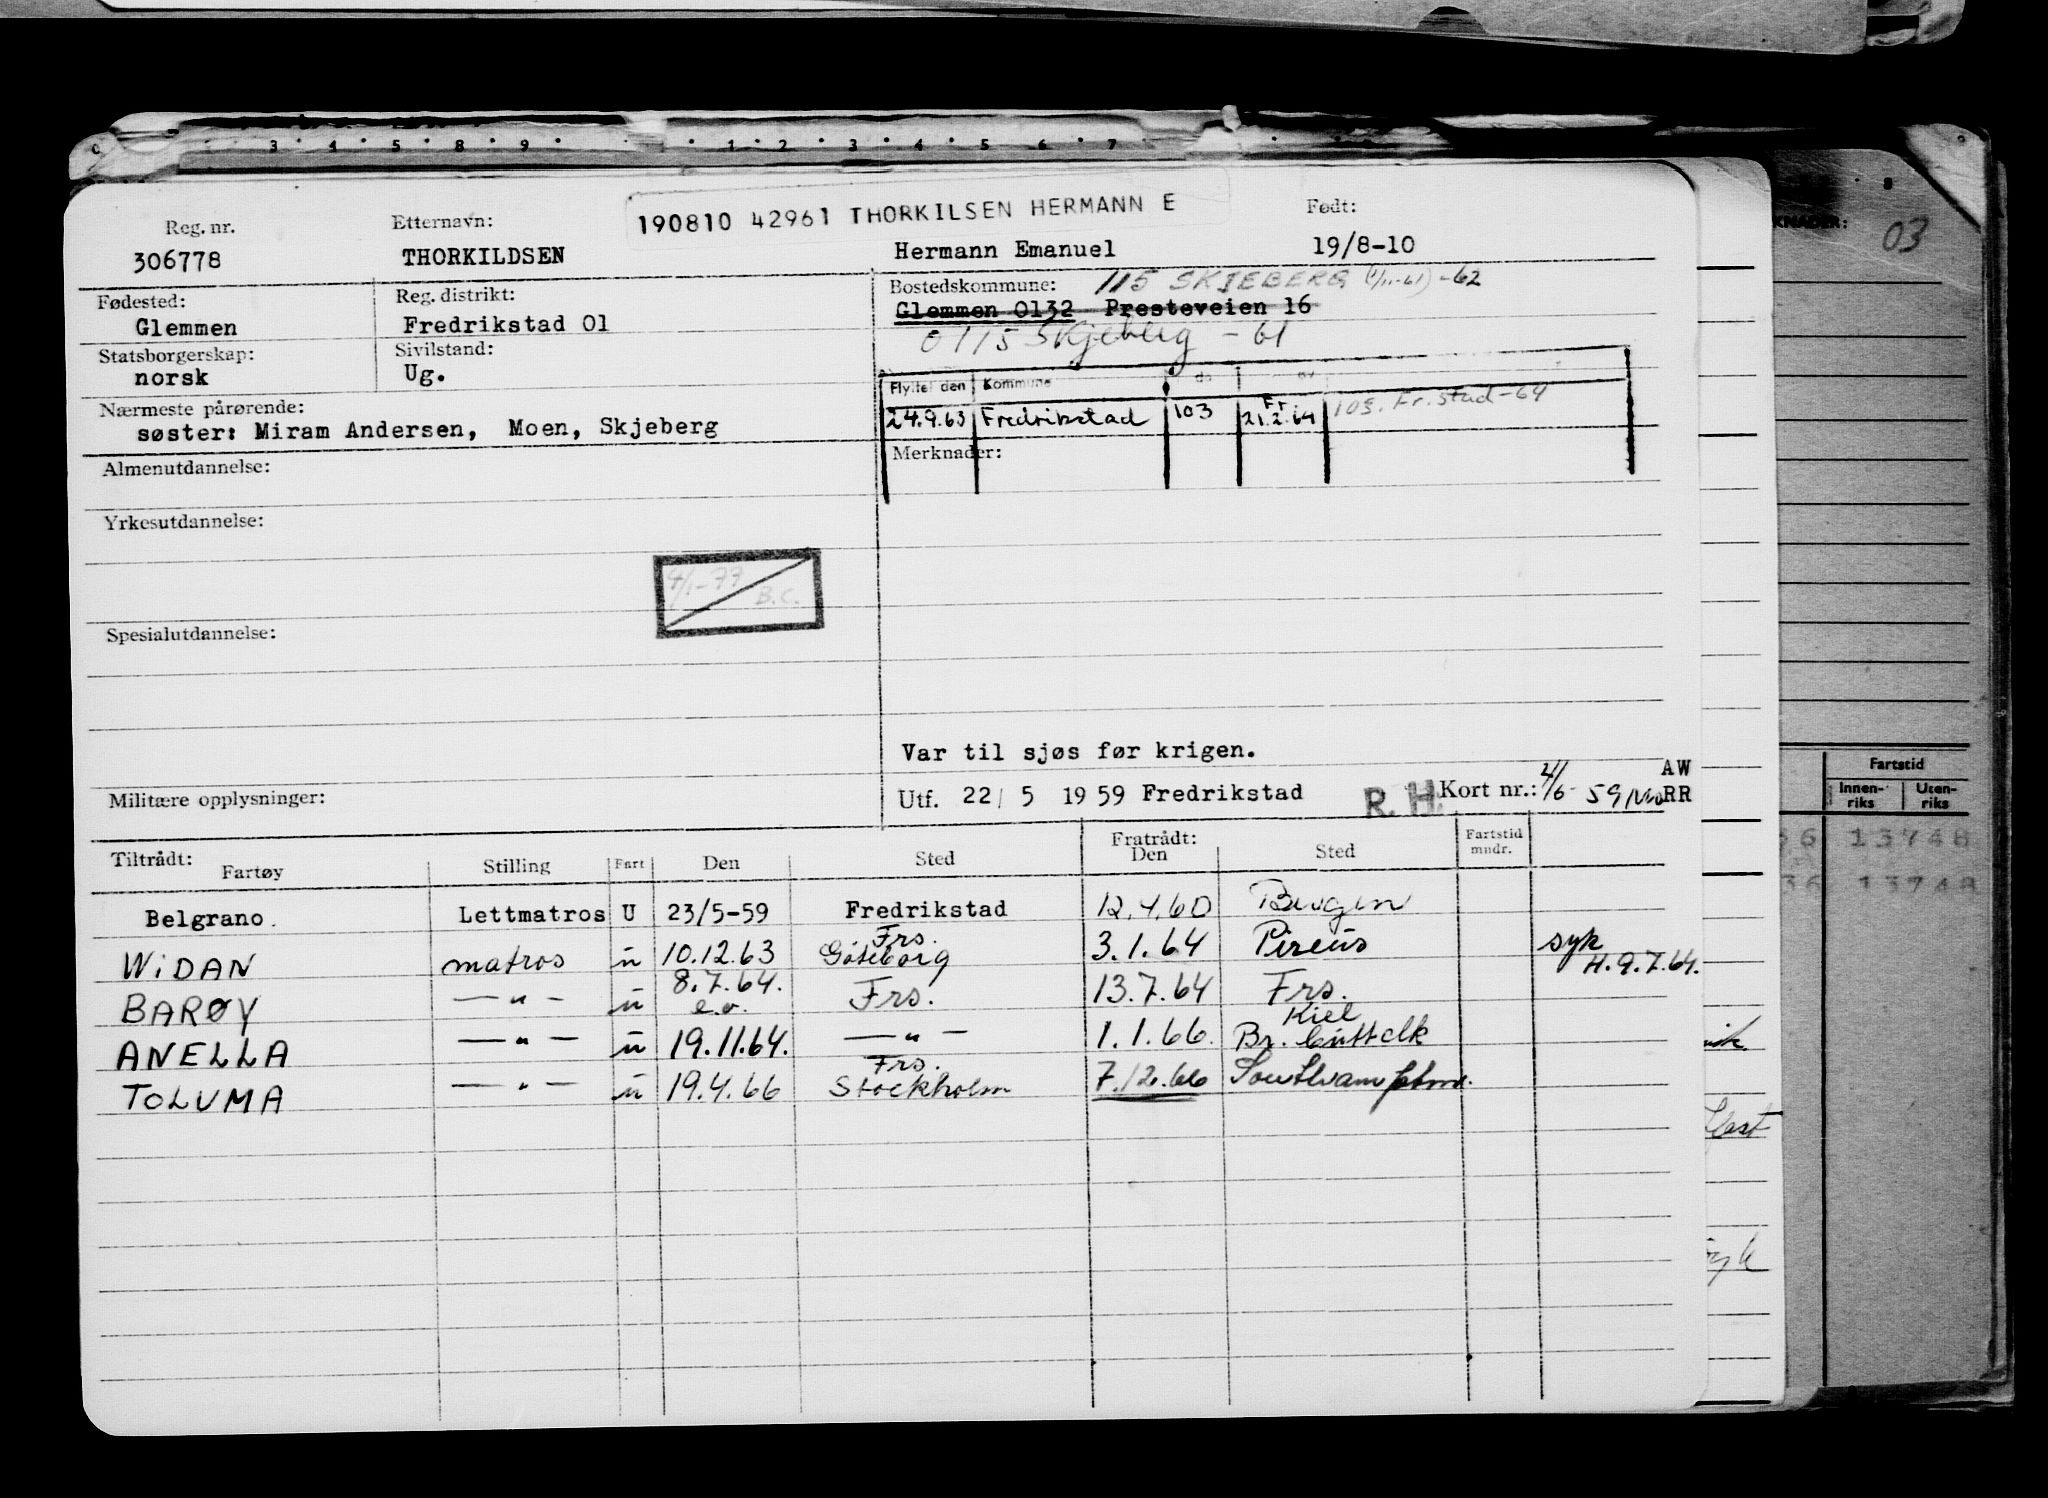 190810 42961 THORKILSEN HERMANN E
Reg. nr. Etternavn: Født:
306778 THORKILDSEN Hermann Emanuel 19/8-10
Fødested: Reg. distrikt: Bostedskommune: 115 SKJEBERG (1/11-61) -62
Glemmen Fredrikstad 01 Glemmen 0132 Presteveien 16
0115 Skjeberg - 61
Statsborgerskap: Sivilstand:
norsk Ug.
Flyttet den Kommune
24.9.63 Fredrikstad 103 Fr. 21.2.64 103. Fr.stad-64
Nærmeste pårørende:
søster: Miram Andersen, Moen, Skjeberg
Merknader:
Almenutdannelse:
Yrkesutdannelse:
4/1-77
B.C.
Spesialutdannelse:
Var til sjøs før krigen.
Militære opplysninger:
Utf. 22/ 5 19 59 Fredrikstad R. H. Kort nr.: AW
RR
Tiltrådt: Fratrådt: Fartstid
Fartøy Stilling Fart Den Sted Den Sted mndr.
Belgrano. Lettmatros U 23/5-59 Fredrikstad 12.4.60 Bergen
WIDAN matros u 10.12.63 Frs. Göteborg 3.1.64 Pireus syk H. 9.7.64.
BARØY —"— u 8.7.64. e.o. Frs. 13.7.64 Frs.
ANELLA —"— u 19.11.64. —"— 1.1.66. Kiel
TOLUMA —"— u 19.4.66 Frs. Stockholm 7.12.66
KNADER: 03
Fartstid
Innen-
riks Uten-
riks
36 13748
36 13748